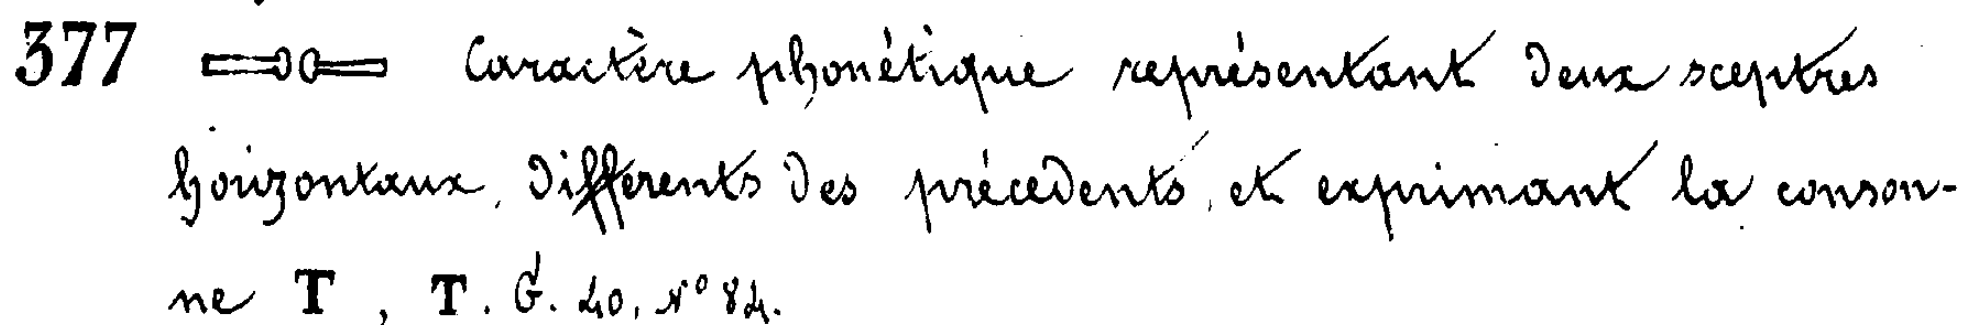 377 Caractère phonétique représentant deux sceptres
horizontaux, différents des précédents, et exprimant la conson-
ne T, T. G. 40, N° 84.